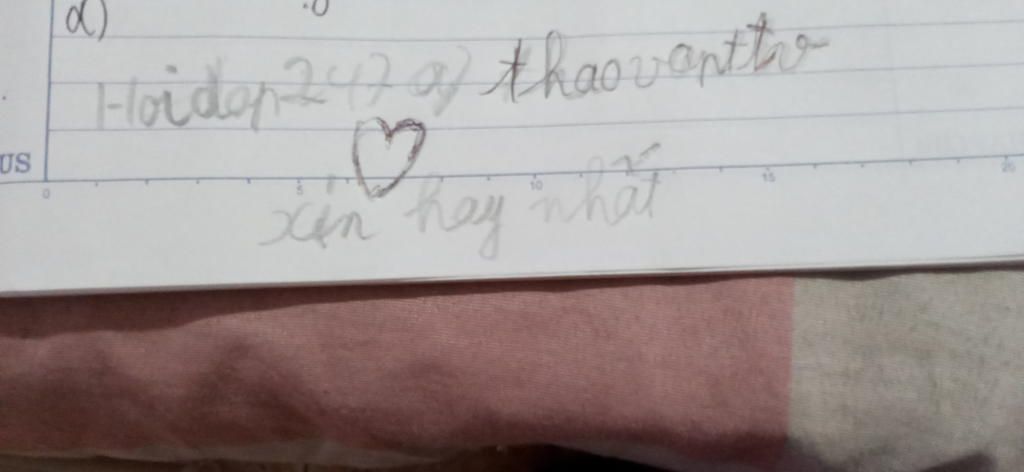 d)
Hoidap247 @ thaovanttv
xin hay nhất
US
0 5 10 15 20